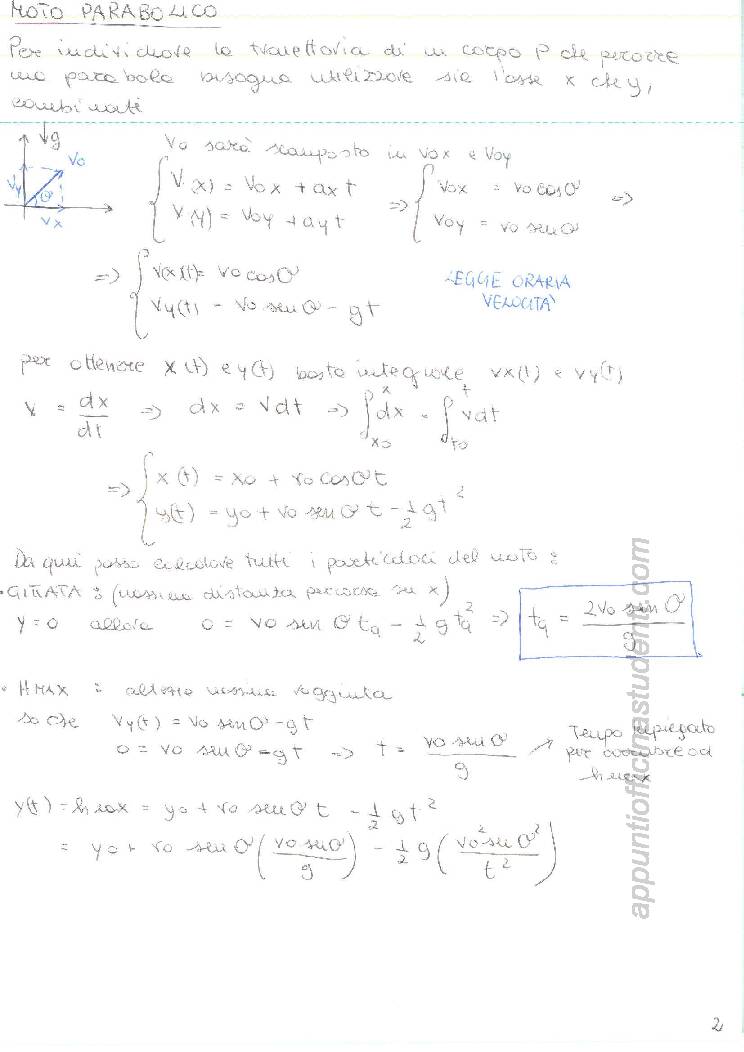 MOTO PARABOLICO
Per individuare la traiettoria di un corpo P che percorre
una parabola bisogna utilizzare sia l'asse x che y,
combinati
g
Vo
Vy
θ
Vx
Vo sarà scomposto in Vox e Voy
{ V(x) = Vox + axt
V(y) = Voy + ayt
=> { Vox = vo cosθ
Voy = vo senθ =>
=> { Vx(t) = Vo cosθ
Vy(t) = Vo senθ - gt
LEGGE ORARIA
VELOCITA'
per ottenere x(t) e y(t) basta integrare vx(t) e vy(t)
V = dx/dt => dx = Vdt => ∫x0^x dx = ∫t0^t vdt
=> { x(t) = xo + vo cosθ t
y(t) = yo + vo senθ t - 1/2 gt²
Da qui posso calcolare tutti i particolari del moto:
• GITTATA: (massima distanza percorsa su x)
y=0 allora 0 = vo sen θ tq - 1/2 g tq² => tq = 2vo sin θ / g
• HMAX = altezza massima raggiunta
so che Vy(t) = Vo senθ - gt
0 = vo senθ - gt => t = vo senθ / g
Tempo impiegato
per arrivare ad
hmax
y(t) = hmax = yo + vo senθ t - 1/2 gt²
= yo + vo senθ (vo senθ / g) - 1/2 g (vo² senθ² / t²)
appuntiofficinastudenti.com
2